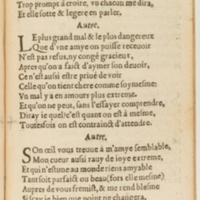 Trop prompt à croire, vo chacun me dira,
Et elle sotte & legere en parler.
Autre.
LE plus grand mal & le plus dangereux
Que d'vne amye on puisse receuoir
N'est pas refus, ny congé gracieux,
Apres qu'on a faict d'aymer son deuoir,
Ce n'est aussi estre priué de voir
Celle qu'on tient chere comme soymesme:
Vn mal y a en amours plus extreme.
Et qu'on ne peut, sans l'essayer comprendre,
Diray ie quel c'est quant on est à mesme,
Toutesfois on est contrainct d'attendre.
Autre.
SOn œil vous treuue à m'amye semblable,
Mon cueur aussi rauy de ioye extreme,
Et qui n'estime au monde riens amyable
Tant soit parfaict ou beau (fors elle mesme)
Aupres de vous fremist, & me rend blesme
Si scay ie bien que point ne changera,